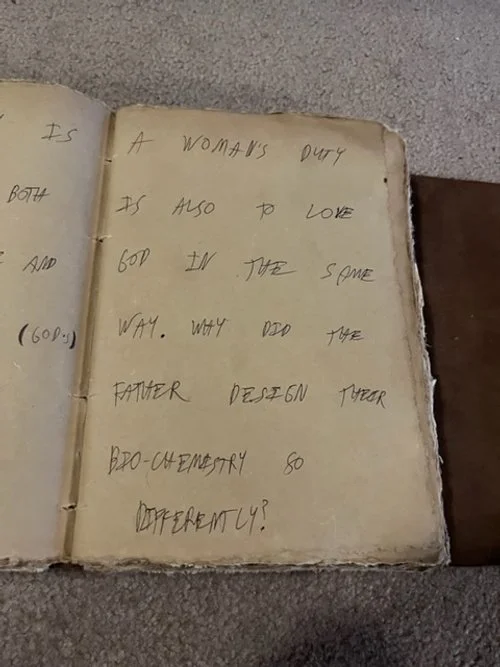 IS
BOTH
AND
(GOD'S)
A WOMAN'S DUTY
IS ALSO TO LOVE
GOD IN THE SAME
WAY. WHY DID THE
FATHER DESIGN THEIR
BIO-CHEMISTRY SO
DIFFERENTLY?